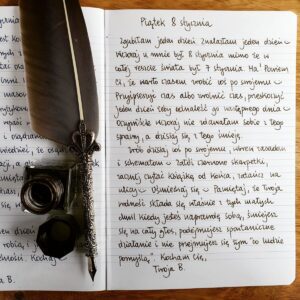 Piątek 8 stycznia
Zgubiłam jeden dzień. Znalazłam jeden dzień.
Wczoraj u mnie był 8 stycznia mimo że w
całej reszcie świata był 7 stycznia. Ha! Powiem
Ci, że warto czasem zrobić coś po swojemu.
Przyspieszyć czas albo zwolnić czas, przeskoczyć
jeden dzień żeby odnaleźć go następnego dnia.
Oczywiście wczoraj nie zdawałam sobie z tego
sprawy, a dzisiaj się z tego śmieję.
Zrób dzisiaj coś po swojemu, wbrew zasadom
i schematom. Załóż czerwone skarpetki,
zacznij czytać książkę od końca, zatańcz na
ulicy. Uśmiechaj się. Pamiętaj, że Twoja
radość składa się właśnie z tych małych
chwil kiedy jesteś naprawdę sobą, śmiejesz
się na cały głos, podejmujesz spontaniczne
działanie i nie przejmujesz się tym "co ludzie
pomyślą". Kocham Cię,
Twoja B.